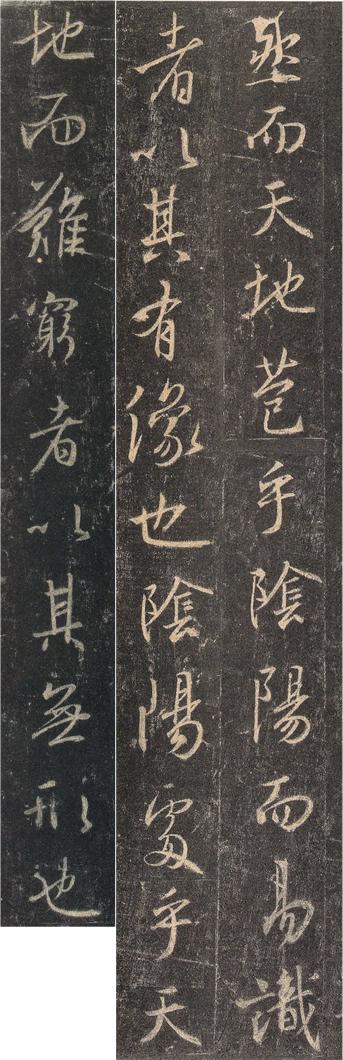 然而天地苞乎陰陽而易識
者以其有像也陰陽處乎天
地而難窮者以其無形也